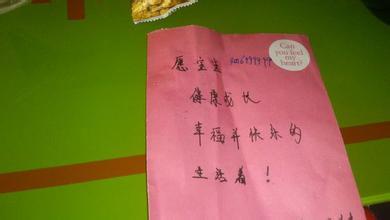 Can
you feel
my
heart?
愿宝宝
健康成长
幸福并快乐的
生活着！